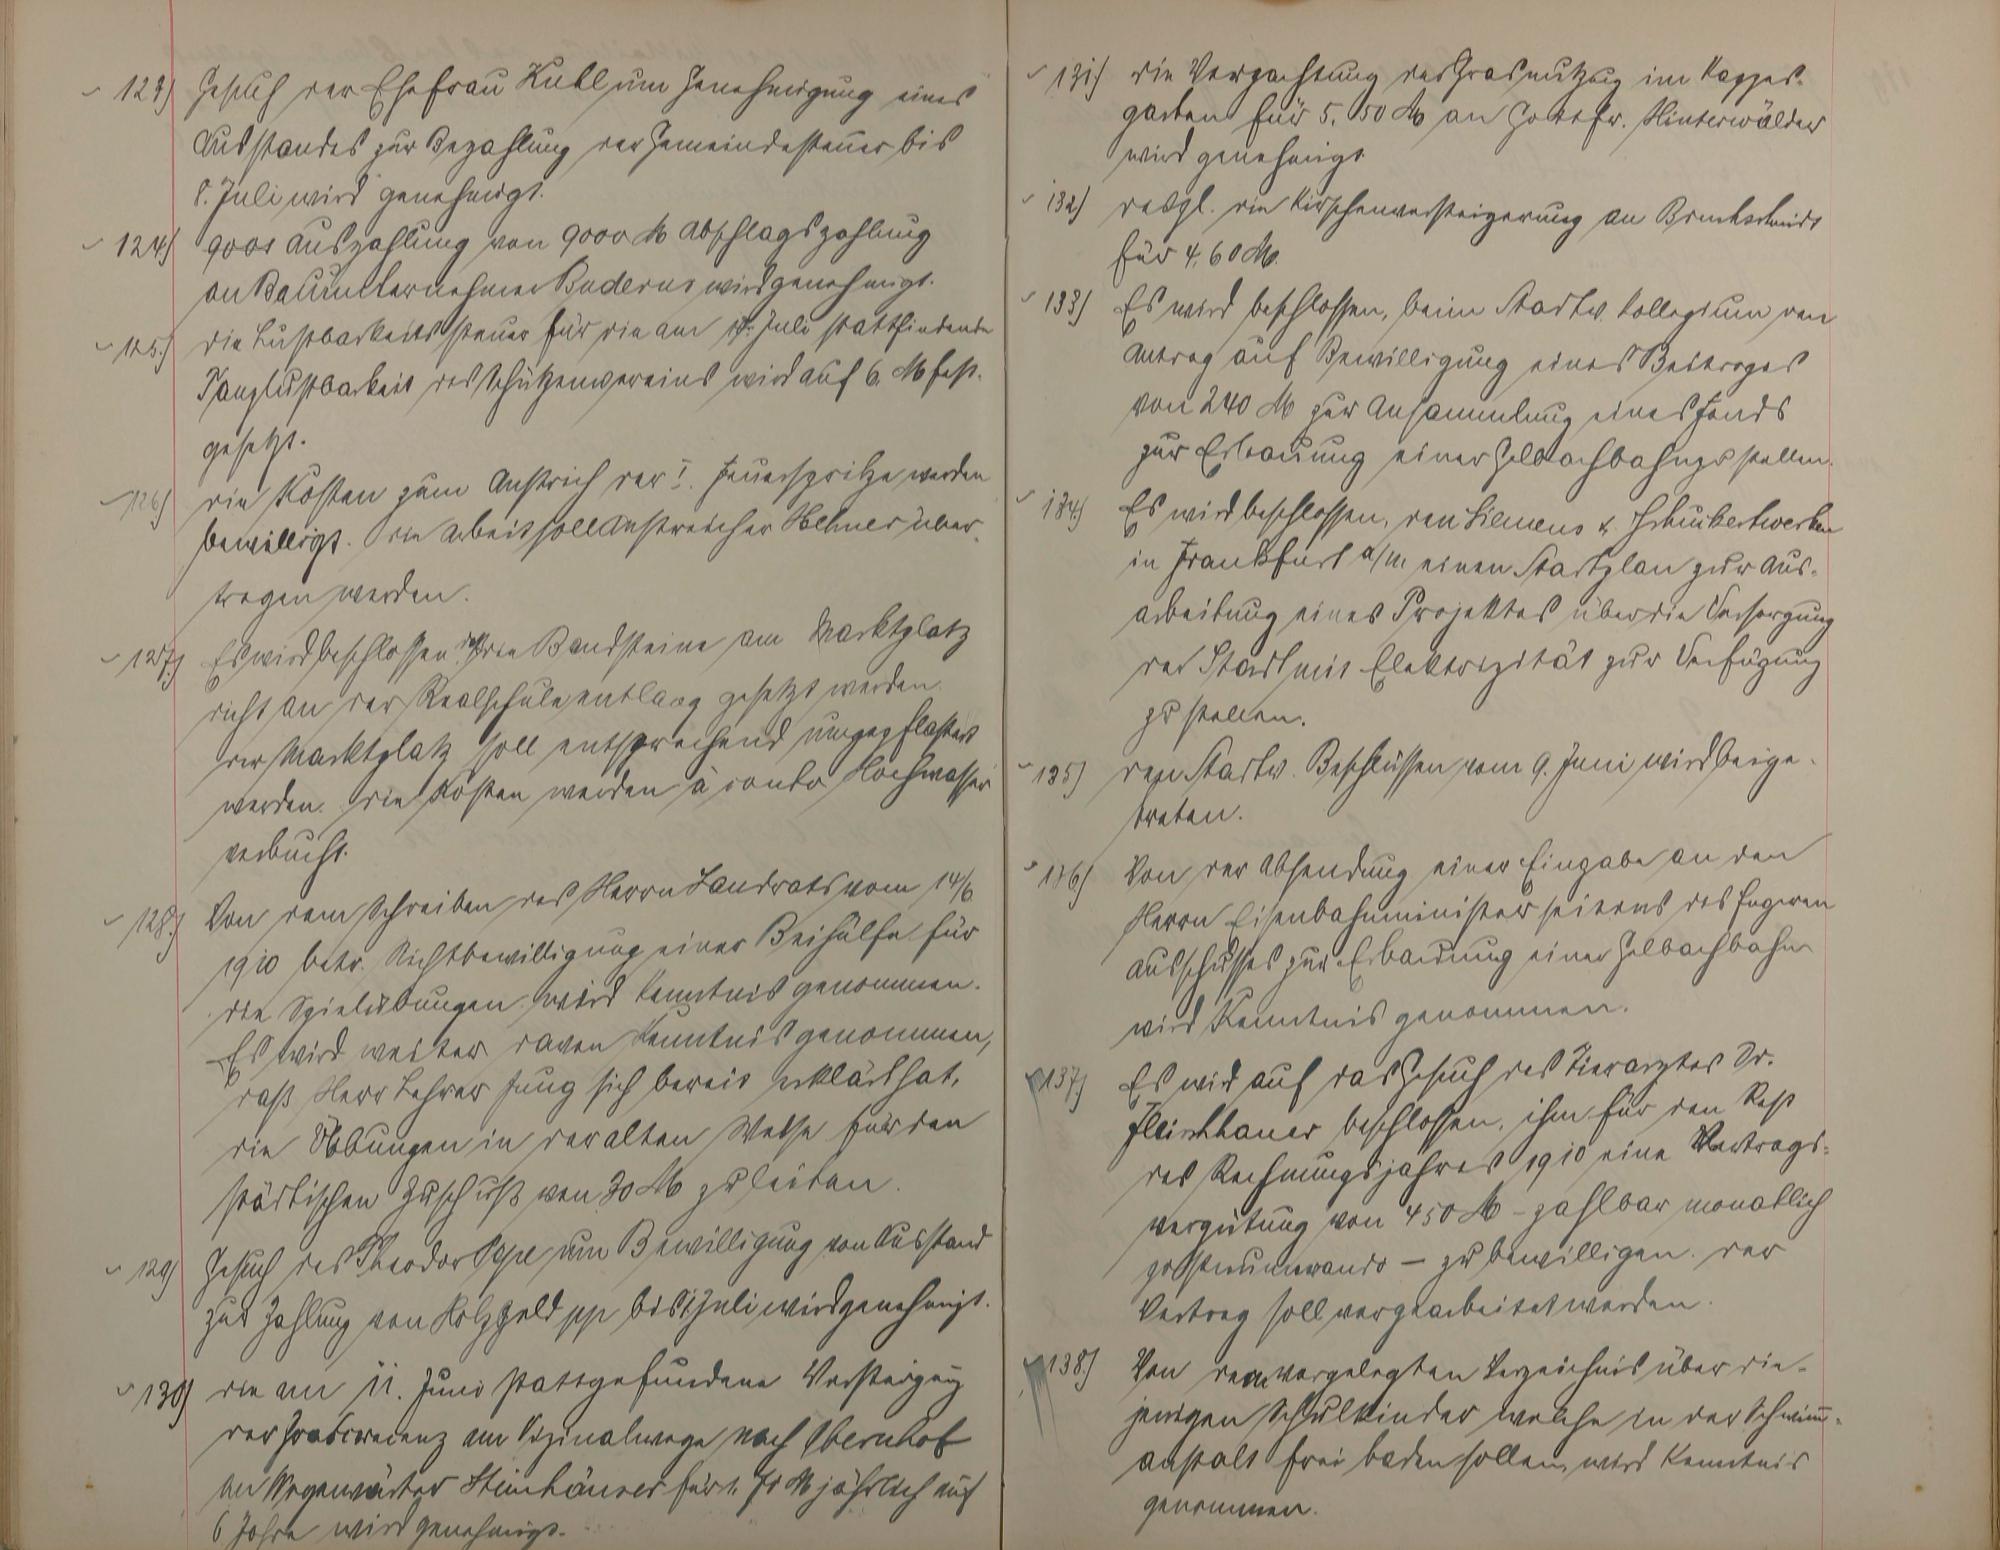 123) Gesuch der Ehefrau Kubl um Genehmigung eines
Ausstandes zur Bezahlung der Gemeindesteuer bis
8. Juli wird genehmigt.
124) Auszahlung von 9000 M Abschlagszahlung
an Bauunternehmer Buderus wird genehmigt.
125.) Die Lustbarkeitssteuer für die am Juli stattfindende
Tanzlustbarkeit des Schützenvereins wird auf 6 M fest-
gesetzt.
126) Die Kosten zum Anstrich der I. Feuerspritze werden
bewilligt. Die Arbeit soll Anstreicher Hehner über-
tragen werden.
127.) Es wird beschlossen, daß die Bandsteine am Marktplatz
dicht an der Realschule entlang gesetzt werden.
Der Marktplatz soll entsprechend umgepflastert
werden. Die Kosten werden à conto Hochwasser
verbucht.
128.) Von dem Schreiben des Herrn Landrats vom 14/6
1910 betr. Nichtbewilligung einer Beihülfe für
die Spielübungen wird Kenntnis genommen.
Es wird weiter davon Kenntnis genommen,
daß Herr Lehrer Jung sich bereit erklärt hat,
die Übungen in der alten Weise für den
städtischen Zuschuß von 30 M zu leiten.
129) Gesuch des Theodor Pape um Bewilligung von Ausstand
zur Zahlung von Holzgeld pp bis 1 Juli wird genehmigt.
130) Die am 11. Juni stattgefundene Versteigerg
der Grascrescenz am Vizinalwege nach Obernhof
an Wegewärter Steinhäuser für M jährlich auf
6 Jahre wird genehmigt.
131.) Die Verpachtung der Grasnutzug im Kappes-
garten für 5,50 M an Gottfr. Hinterwälder
wird genehmigt
132) desgl. die Kirschenversteigerung an Bruchschmidt
für 4,60 M.
133) Es wird beschlossen, beim Stadtv. Kollegium den
Antrag auf Bewilligung eines Beitrages
von 240 M zur Ansammlung eines Fonds
zur Erbauung einer Gelbachbahn zu stellen.
134.) Es wird beschlossen, den Siemens & Schuckertwerken
in Frankfurt a/M. einen Stadtplan zur Aus-
arbeitung eines Projektes über die Versorgung
der Stadt mit Elektrizität zur Verfügung
zu stellen.
135) Den Stadtv. Beschlüssen vom 9. Juni wird beige-
treten.
136) Von der Absendung einer Eingabe an den
Herrn Eisenbahnminister seitens des engeren
Ausschusses zur Erbauung einer Gelbachbahn
wird Kenntnis genommen.
137.) Es wird auf das Gesuch des Tierarztes Dr.
Fleischhauer beschlossen, ihm für den Rest
des Rechnungsjahres 1910 eine Vertrags-
vergütung von 450 M – zahlbar monatlich
postnumerando – zu bewilligen. Der
Vertrag soll vorgearbeitet werden.
138.) Von dem vorgelegten Verzeichnis über die-
jenigen Schulkinder welche in der Schwimm-
anstalt frei baden sollen, wird Kenntnis
genommen.